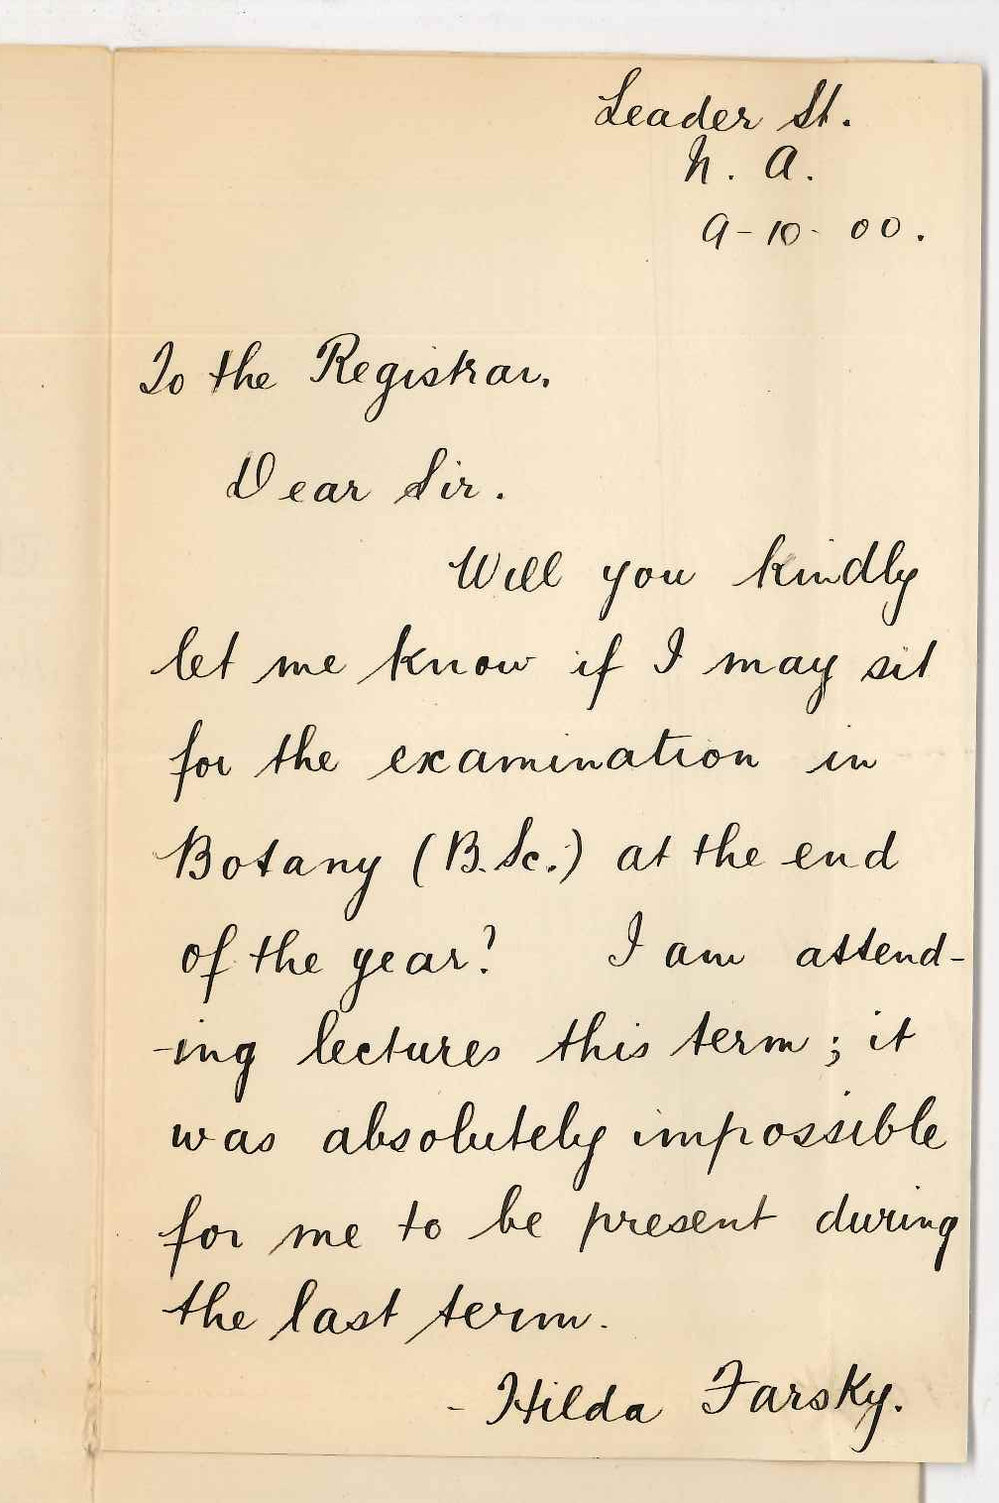 Leader St.
N. A.
9-10-00.
To the Registrar.
Dear Sir.
Will you kindly
let me know if I may sit
for the examination in
Botany (B.Sc.) at the end
of the year? I am attend-
-ing lectures this term; it
was absolutely impossible
for me to be present during
the last term.
- Hilda Farsky.